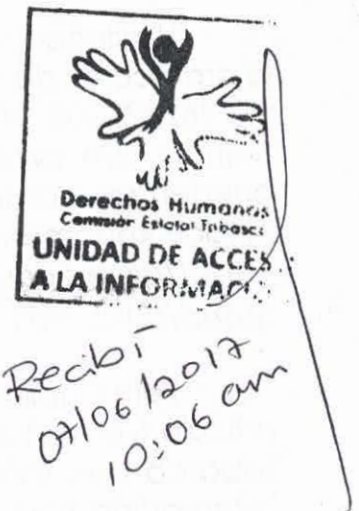 Derechos Humanos
Comisión Estatal Tabasco
UNIDAD DE ACCES
A LA INFORMACI
Recibí
07/06/2017
10:06 am